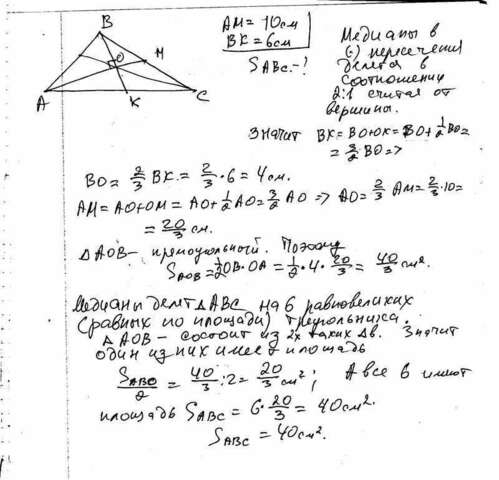 B
O
M
A
K
C
AM = 10 см
BK = 6 см
S ABC - ?
Медианы в
(·) пересечения
делятся в
соотношении
2:1 считая от
вершины.
Значит BK = BO + OK = BO + 1/2 BO =
= 3/2 BO =>
BO = 2/3 BK = 2/3 · 6 = 4 см.
AM = AO + OM = AO + 1/2 AO = 3/2 AO => AO = 2/3 AM = 2/3 · 10 =
= 20/3 см.
△AOB - прямоугольный. Поэтому
S AOB = 1/2 OB · OA = 1/2 · 4 · 20/3 = 40/3 см².
Медианы делят △ABC на 6 равновеликих
(равных по площади) треугольника.
△AOB - состоит из 2х таких △в. Значит
один из них имеет площадь
S ABO / 2 = 40/3 : 2 = 20/3 см²; А все 6 имеют
площадь S ABC = 6 · 20/3 = 40 см².
S ABC = 40 см².